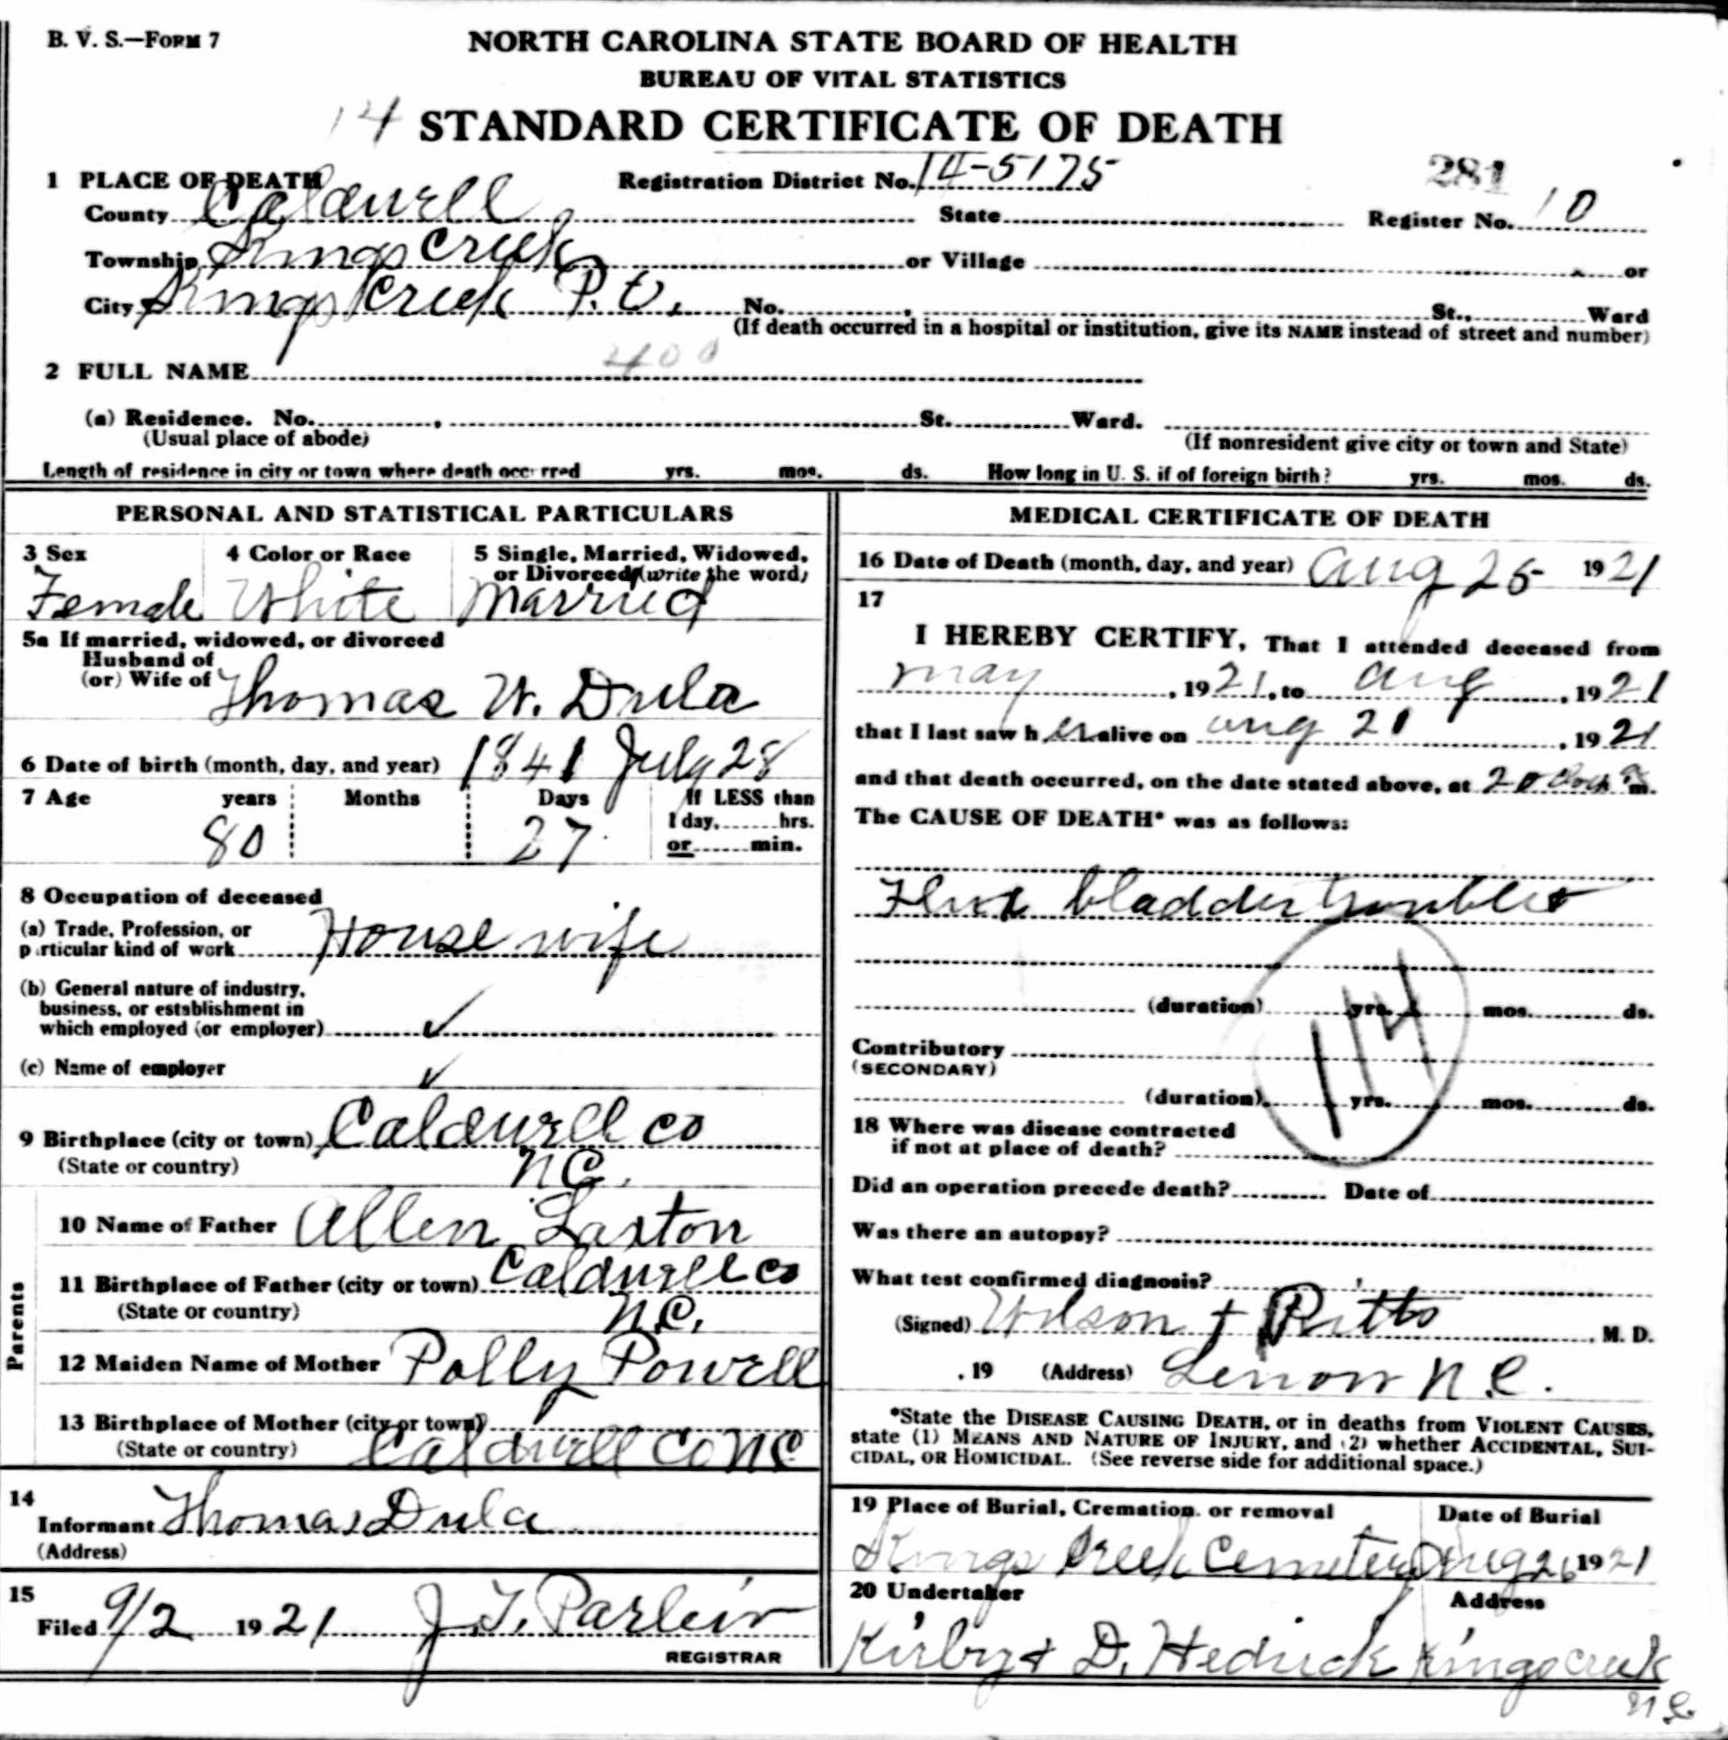 B. V. S.—Form 7
NORTH CAROLINA STATE BOARD OF HEALTH
BUREAU OF VITAL STATISTICS
14 STANDARD CERTIFICATE OF DEATH
1 PLACE OF DEATH Registration District No. 14-5175 281
County Caldwell State Register No. 10
Township Kings Creek or Village or
City Kings Creek P.O. No. , St., Ward
(If death occurred in a hospital or institution, give its NAME instead of street and number)
400
2 FULL NAME
(a) Residence. No. , St. Ward.
(Usual place of abode) (If nonresident give city or town and State)
Length of residence in city or town where death occurred yrs. mos. ds. How long in U. S. if of foreign birth? yrs. mos. ds.
PERSONAL AND STATISTICAL PARTICULARS
3 Sex 4 Color or Race 5 Single, Married, Widowed,
or Divorced (write the word)
Female White Married
5a If married, widowed, or divorced
Husband of
(or) Wife of Thomas W. Dula
6 Date of birth (month, day, and year) 1841 July 28
7 Age years Months Days If LESS than
1 day, hrs.
80 27 or min.
8 Occupation of deceased
(a) Trade, Profession, or
particular kind of work House wife
(b) General nature of industry,
business, or establishment in
which employed (or employer) ✓
(c) Name of employer ✓
9 Birthplace (city or town) Caldwell co
(State or country) N C.
Parents
10 Name of Father Allen Laxton
11 Birthplace of Father (city or town) Caldwell co
(State or country) N.C.
12 Maiden Name of Mother Polly Powell
13 Birthplace of Mother (city or town)
(State or country) Caldwell Co NC
14
Informant Thomas Dula
(Address)
15
Filed 9/2 1921 J. T. Parlier
REGISTRAR
MEDICAL CERTIFICATE OF DEATH
16 Date of Death (month, day, and year) Aug 25 1921
17
I HEREBY CERTIFY, That I attended deceased from
May , 1921, to Aug , 1921
that I last saw h er alive on Aug 21 , 1921
and that death occurred, on the date stated above, at 2 o m.
The CAUSE OF DEATH* was as follows:
bladder trouble
114
(duration) yrs. mos. ds.
Contributory
(SECONDARY)
(duration) yrs. mos. ds.
18 Where was disease contracted
if not at place of death?
Did an operation precede death? Date of
Was there an autopsy?
What test confirmed diagnosis?
(Signed) Wilson + , M. D.
, 19 (Address) Lenoir N C.
*State the DISEASE CAUSING DEATH, or in deaths from VIOLENT CAUSES,
state (1) MEANS AND NATURE OF INJURY, and (2) whether ACCIDENTAL, SUI-
CIDAL, OR HOMICIDAL. (See reverse side for additional space.)
19 Place of Burial, Cremation, or removal Date of Burial
Kings Creek Cemetery Aug 26 1921
20 Undertaker Address
Kirby + D. Hedrick Kings creek
N C.